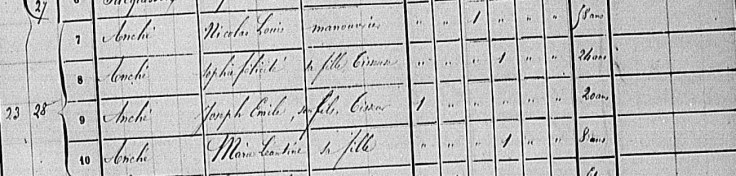 27
7 Anché Nicolas Louis manouvrier " " 1 " " " 58 ans
8 Anché Sophie félicité sa fille " " " 1 " " 24 ans
23 28 9 Anché Joseph Emile, son fils, 1 " " " " " 20 ans
10 Anché Maria Leontine sa fille " " " 1 " " 8 ans